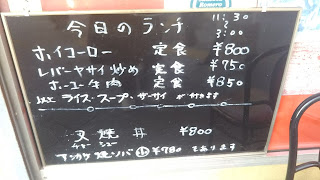 Romero
今日のランチ
11:30
〜
3:00
ホイコーロー 定食 ¥800
レバーヤサイ炒め 定食 ¥750
ホーユー牛肉 定食 ¥850
以上 ライス・スープ・ザーサイ が付きます
叉焼丼 ¥800
チャーシュー
アンカケ焼ソバ ¥780 もあります